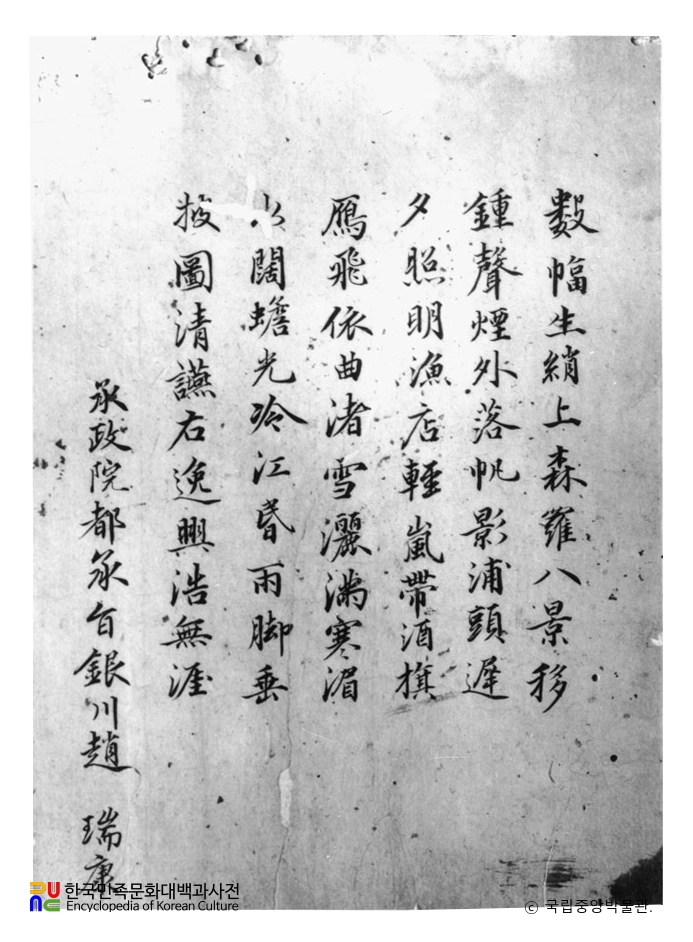 數幅生綃上森羅八景移
鍾聲煙外落帆影浦頭遲
夕照明漁店輕嵐帶酒旗
鴈飛依曲渚雪灑滿寒湄
水闊蟾光冷江昏雨脚垂
披圖清讌右逸興浩無涯
承政院都承旨銀川趙 瑞康
한국민족문화대백과사전
Encyclopedia of Korean Culture
© 국립중앙박물관.